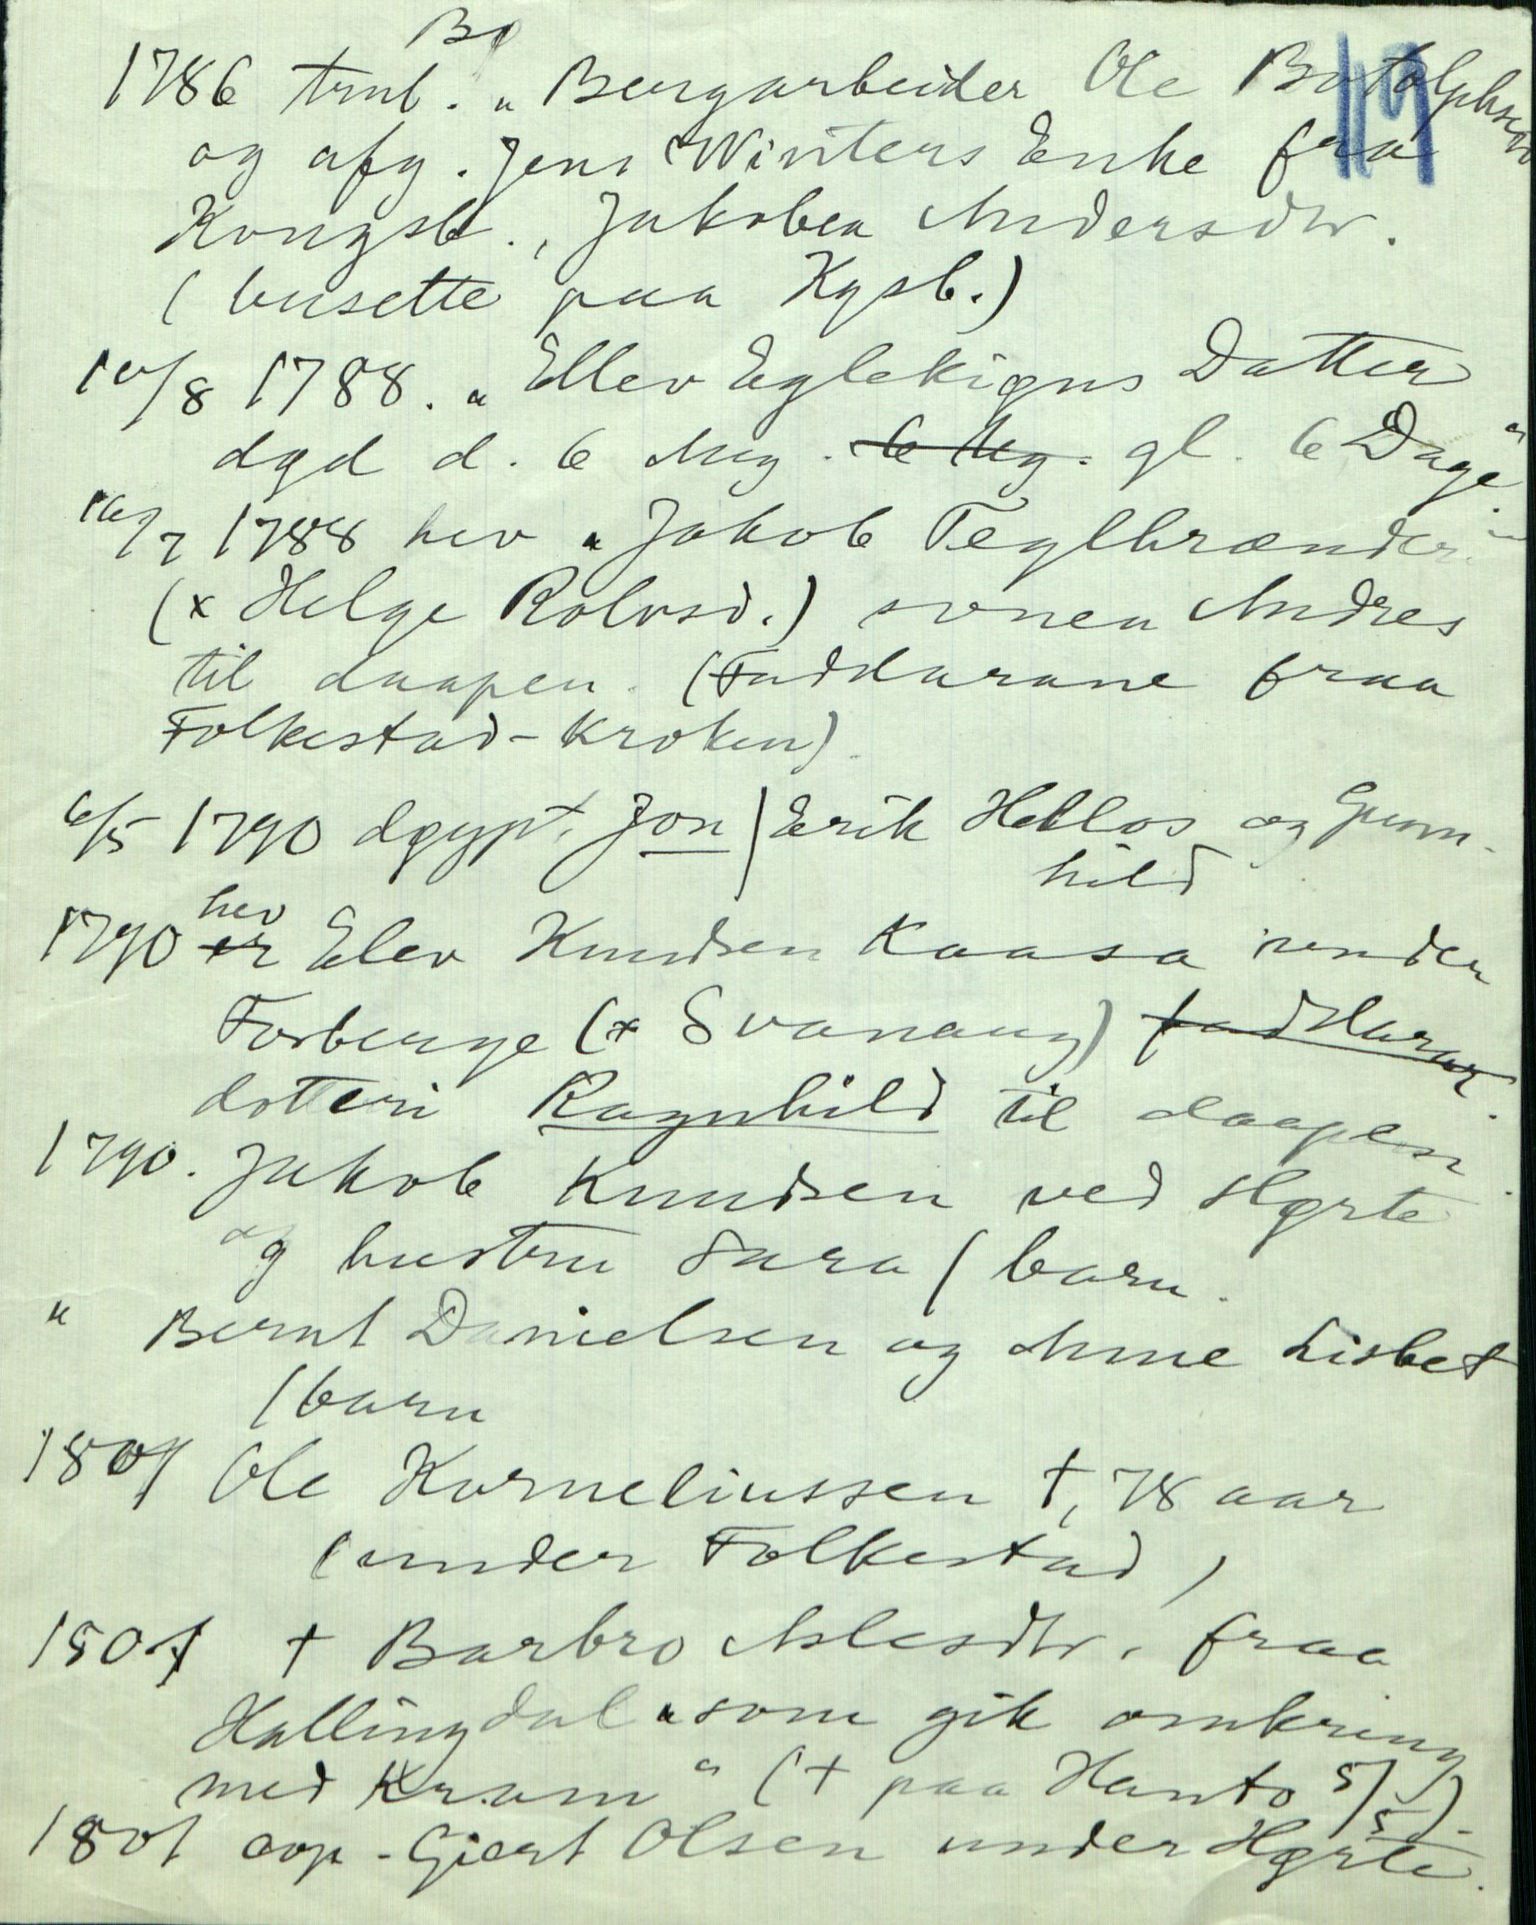 Bø
119
1786 trul. „Bergarbeider Ole Botolphsen
og afg. Jens Winters Enke fra
Kongsb., Jakobea Andersdtr.
(busette paa Kgsb.)
10/8 1788. „Ellev Eglekigns Datter
dgd d. 6 Aug. 6 Aug. gl. 6 Dage"
16/7 1788 hev „Jakob Teglbrænder"
(x Helge Rolvsd.) sonen Andres
til daapen. (Faddarane fraa
Folkestad-Kroken).
6/5 1790 dgypt. Jon / Erik Hellos og Gunn-
hild
hev
1790 er Elev Knudsen Kaasa under
Forberge (x Svanaug) faddarar
dotteri Ragnhild til daapen.
1790. Jakob Knudsen ved Hørte
og hustru Sara / barn.
" Bernt Danielsen og Anne Lisbet
/ barn
1801 Ole Korneliussen †, 78 aar
(under Folkestad)
1801 † Barbro Aslesdtr. fraa
Hallingdal „som gik omkring
med Kram" († paa Hanto 5/5).
1801 cop. Giert Olsen under Hørte.